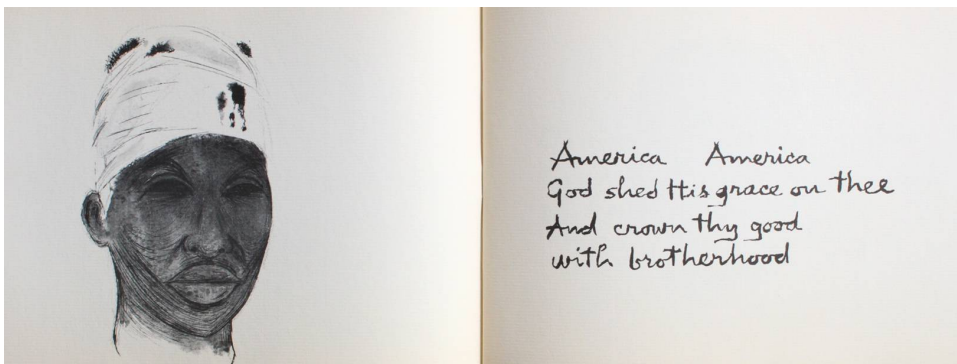 America America
God shed His grace on thee
And crown thy good
with brotherhood